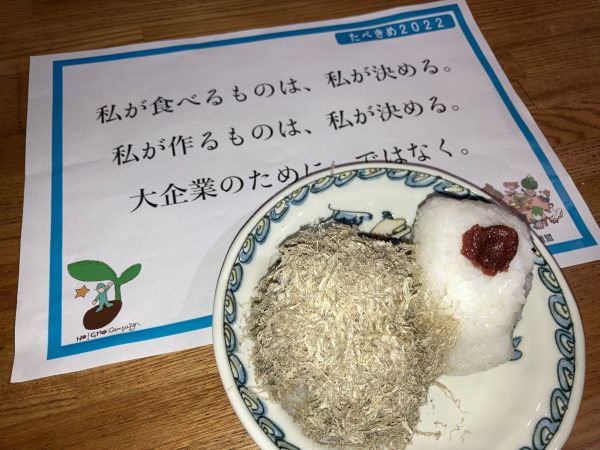 たべきめ2022
私が食べるものは、私が決める。
私が作るものは、私が決める。
大企業のために、ではなく。
NO! GMO Campaign
盟